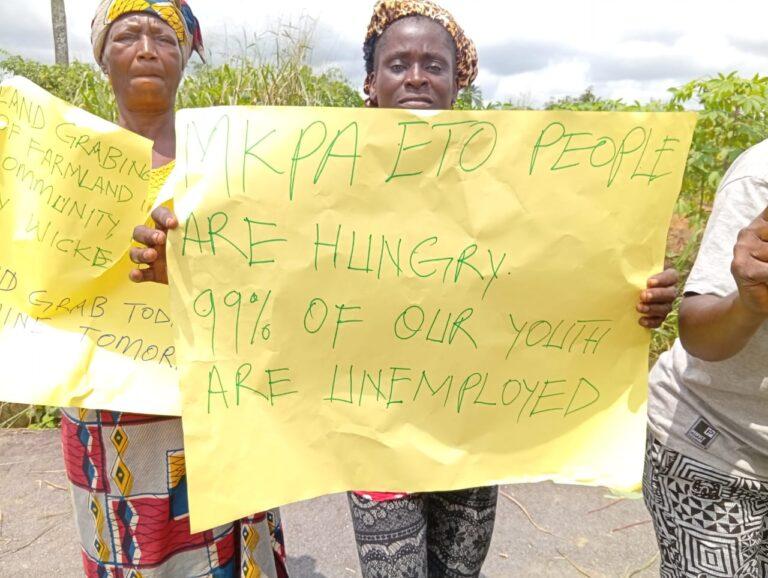 LAND GRABING
OF FARMLAND
COMMUNITY,
WICKE
GRAB TOD
TOMOR
MKPA ETO PEOPLE
ARE HUNGRY.
99% OF OUR YOUTH
ARE UNEMPLOYED